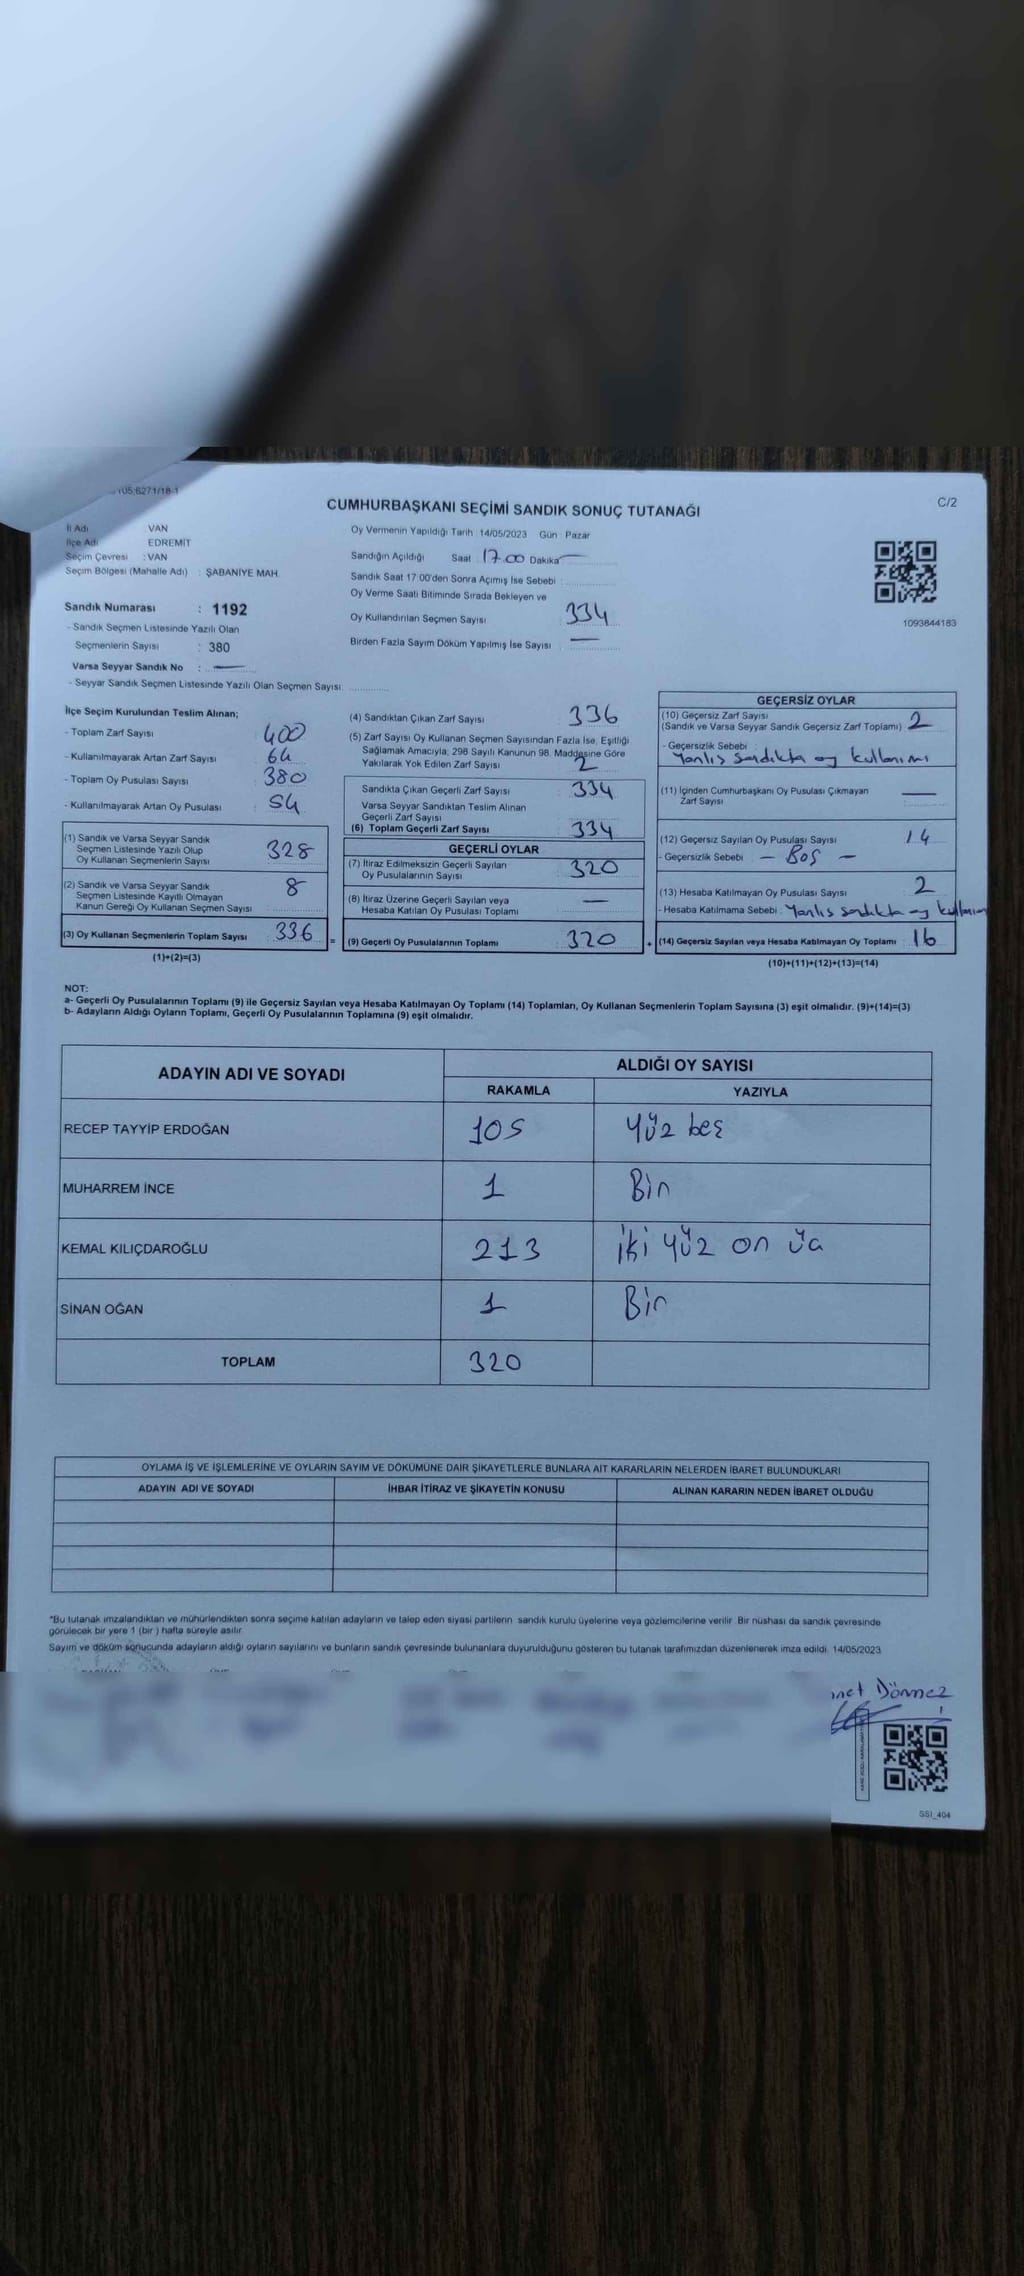 105;6271/18-1
C/2
CUMHURBAŞKANI SEÇİMİ SANDIK SONUÇ TUTANAĞI
İl Adı VAN
İlçe Adı EDREMİT
Seçim Çevresi : VAN
Seçim Bölgesi (Mahalle Adı) : ŞABANİYE MAH.
Oy Vermenin Yapıldığı Tarih 14/05/2023 Gün Pazar
Sandığın Açıldığı Saat 17.00 Dakika —
Sandık Saat 17:00'den Sonra Açımış İse Sebebi :
Oy Verme Saati Bitiminde Sırada Bekleyen ve
Oy Kullandırılan Seçmen Sayısı : 334
Birden Fazla Sayım Döküm Yapılmış İse Sayısı : —
1093844183
Sandık Numarası : 1192
- Sandık Seçmen Listesinde Yazılı Olan
Seçmenlerin Sayısı : 380
Varsa Seyyar Sandık No : —
- Seyyar Sandık Seçmen Listesinde Yazılı Olan Seçmen Sayısı:
İlçe Seçim Kurulundan Teslim Alınan;
- Toplam Zarf Sayısı : 400
- Kullanılmayarak Artan Zarf Sayısı : 64
- Toplam Oy Pusulası Sayısı : 380
- Kullanılmayarak Artan Oy Pusulası : 54
(1) Sandık ve Varsa Seyyar Sandık
Seçmen Listesinde Yazılı Olup
Oy Kullanan Seçmenlerin Sayısı 328
(2) Sandık ve Varsa Seyyar Sandık
Seçmen Listesinde Kayıtlı Olmayan
Kanun Gereği Oy Kullanan Seçmen Sayısı 8
(3) Oy Kullanan Seçmenlerin Toplam Sayısı 336
(1)+(2)=(3)
(4) Sandıktan Çıkan Zarf Sayısı 336
(5) Zarf Sayısı Oy Kullanan Seçmen Sayısından Fazla İse, Eşitliği
Sağlamak Amacıyla, 298 Sayılı Kanunun 98. Maddesine Göre
Yakılarak Yok Edilen Zarf Sayısı 2
Sandıkta Çıkan Geçerli Zarf Sayısı 334
Varsa Seyyar Sandıktan Teslim Alınan
Geçerli Zarf Sayısı
(6) Toplam Geçerli Zarf Sayısı 334
GEÇERLİ OYLAR
(7) İtiraz Edilmeksizin Geçerli Sayılan
Oy Pusulalarının Sayısı 320
(8) İtiraz Üzerine Geçerli Sayılan veya
Hesaba Katılan Oy Pusulası Toplamı —
= (9) Geçerli Oy Pusulalarının Toplamı 320 +
GEÇERSİZ OYLAR
(10) Geçersiz Zarf Sayısı
(Sandık ve Varsa Seyyar Sandık Geçersiz Zarf Toplamı) 2
- Geçersizlik Sebebi :
Yanlış sandıkta oy kullanımı
(11) İçinden Cumhurbaşkanı Oy Pusulası Çıkmayan
Zarf Sayısı —
(12) Geçersiz Sayılan Oy Pusulası Sayısı 14
- Geçersizlik Sebebi : — Boş —
(13) Hesaba Katılmayan Oy Pusulası Sayısı 2
- Hesaba Katılmama Sebebi : Yanlış sandıkta oy kullanım
(14) Geçersiz Sayılan veya Hesaba Katılmayan Oy Toplamı 16
(10)+(11)+(12)+(13)=(14)
NOT:
a- Geçerli Oy Pusulalarının Toplamı (9) ile Geçersiz Sayılan veya Hesaba Katılmayan Oy Toplamı (14) Toplamları, Oy Kullanan Seçmenlerin Toplam Sayısına (3) eşit olmalıdır. (9)+(14)=(3)
b- Adayların Aldığı Oyların Toplamı, Geçerli Oy Pusulalarının Toplamına (9) eşit olmalıdır.
ADAYIN ADI VE SOYADI ALDIĞI OY SAYISI
RAKAMLA YAZIYLA
RECEP TAYYİP ERDOĞAN 105 Yüz beş
MUHARREM İNCE 1 Bir
KEMAL KILIÇDAROĞLU 213 iki yüz on üç
SİNAN OĞAN 1 Bir
TOPLAM 320
OYLAMA İŞ VE İŞLEMLERİNE VE OYLARIN SAYIM VE DÖKÜMÜNE DAİR ŞİKAYETLERLE BUNLARA AİT KARARLARIN NELERDEN İBARET BULUNDUKLARI
ADAYIN ADI VE SOYADI İHBAR İTİRAZ VE ŞİKAYETİN KONUSU ALINAN KARARIN NEDEN İBARET OLDUĞU
*Bu tutanak imzalandıktan ve mühürlendikten sonra seçime katılan adayların ve talep eden siyasi partilerin sandık kurulu üyelerine veya gözlemcilerine verilir. Bir nüshası da sandık çevresinde
görülecek bir yere 1 (bir) hafta süreyle asılır.
Sayım ve döküm sonucunda adayların aldığı oyların sayılarını ve bunların sandık çevresinde bulunanlara duyurulduğunu gösteren bu tutanak tarafımızdan düzenlenerek imza edildi. 14/05/2023
Dönmez
SSI_404